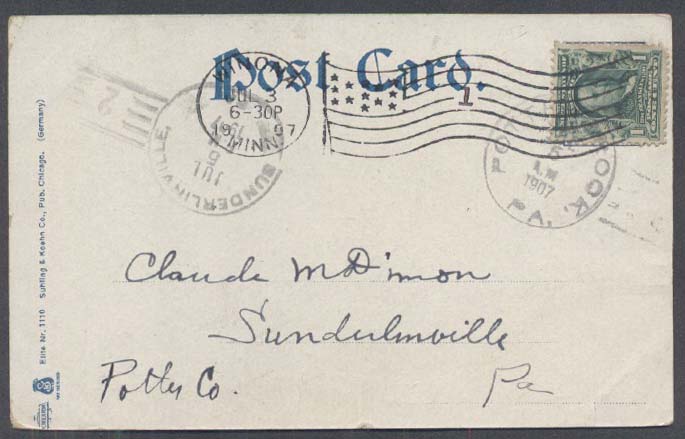 Post Card.
WINONA
JUL 3
6-30P
1907
MINN.
1
SUNDERLINVILLE,
JUL
5
A.M
1907
PA.
Claude McDimon
Sunderlinville
Potter Co. Pa
Elite Nr. 1110 Suhling & Koehn Co., Pub. Chicago. (Germany)